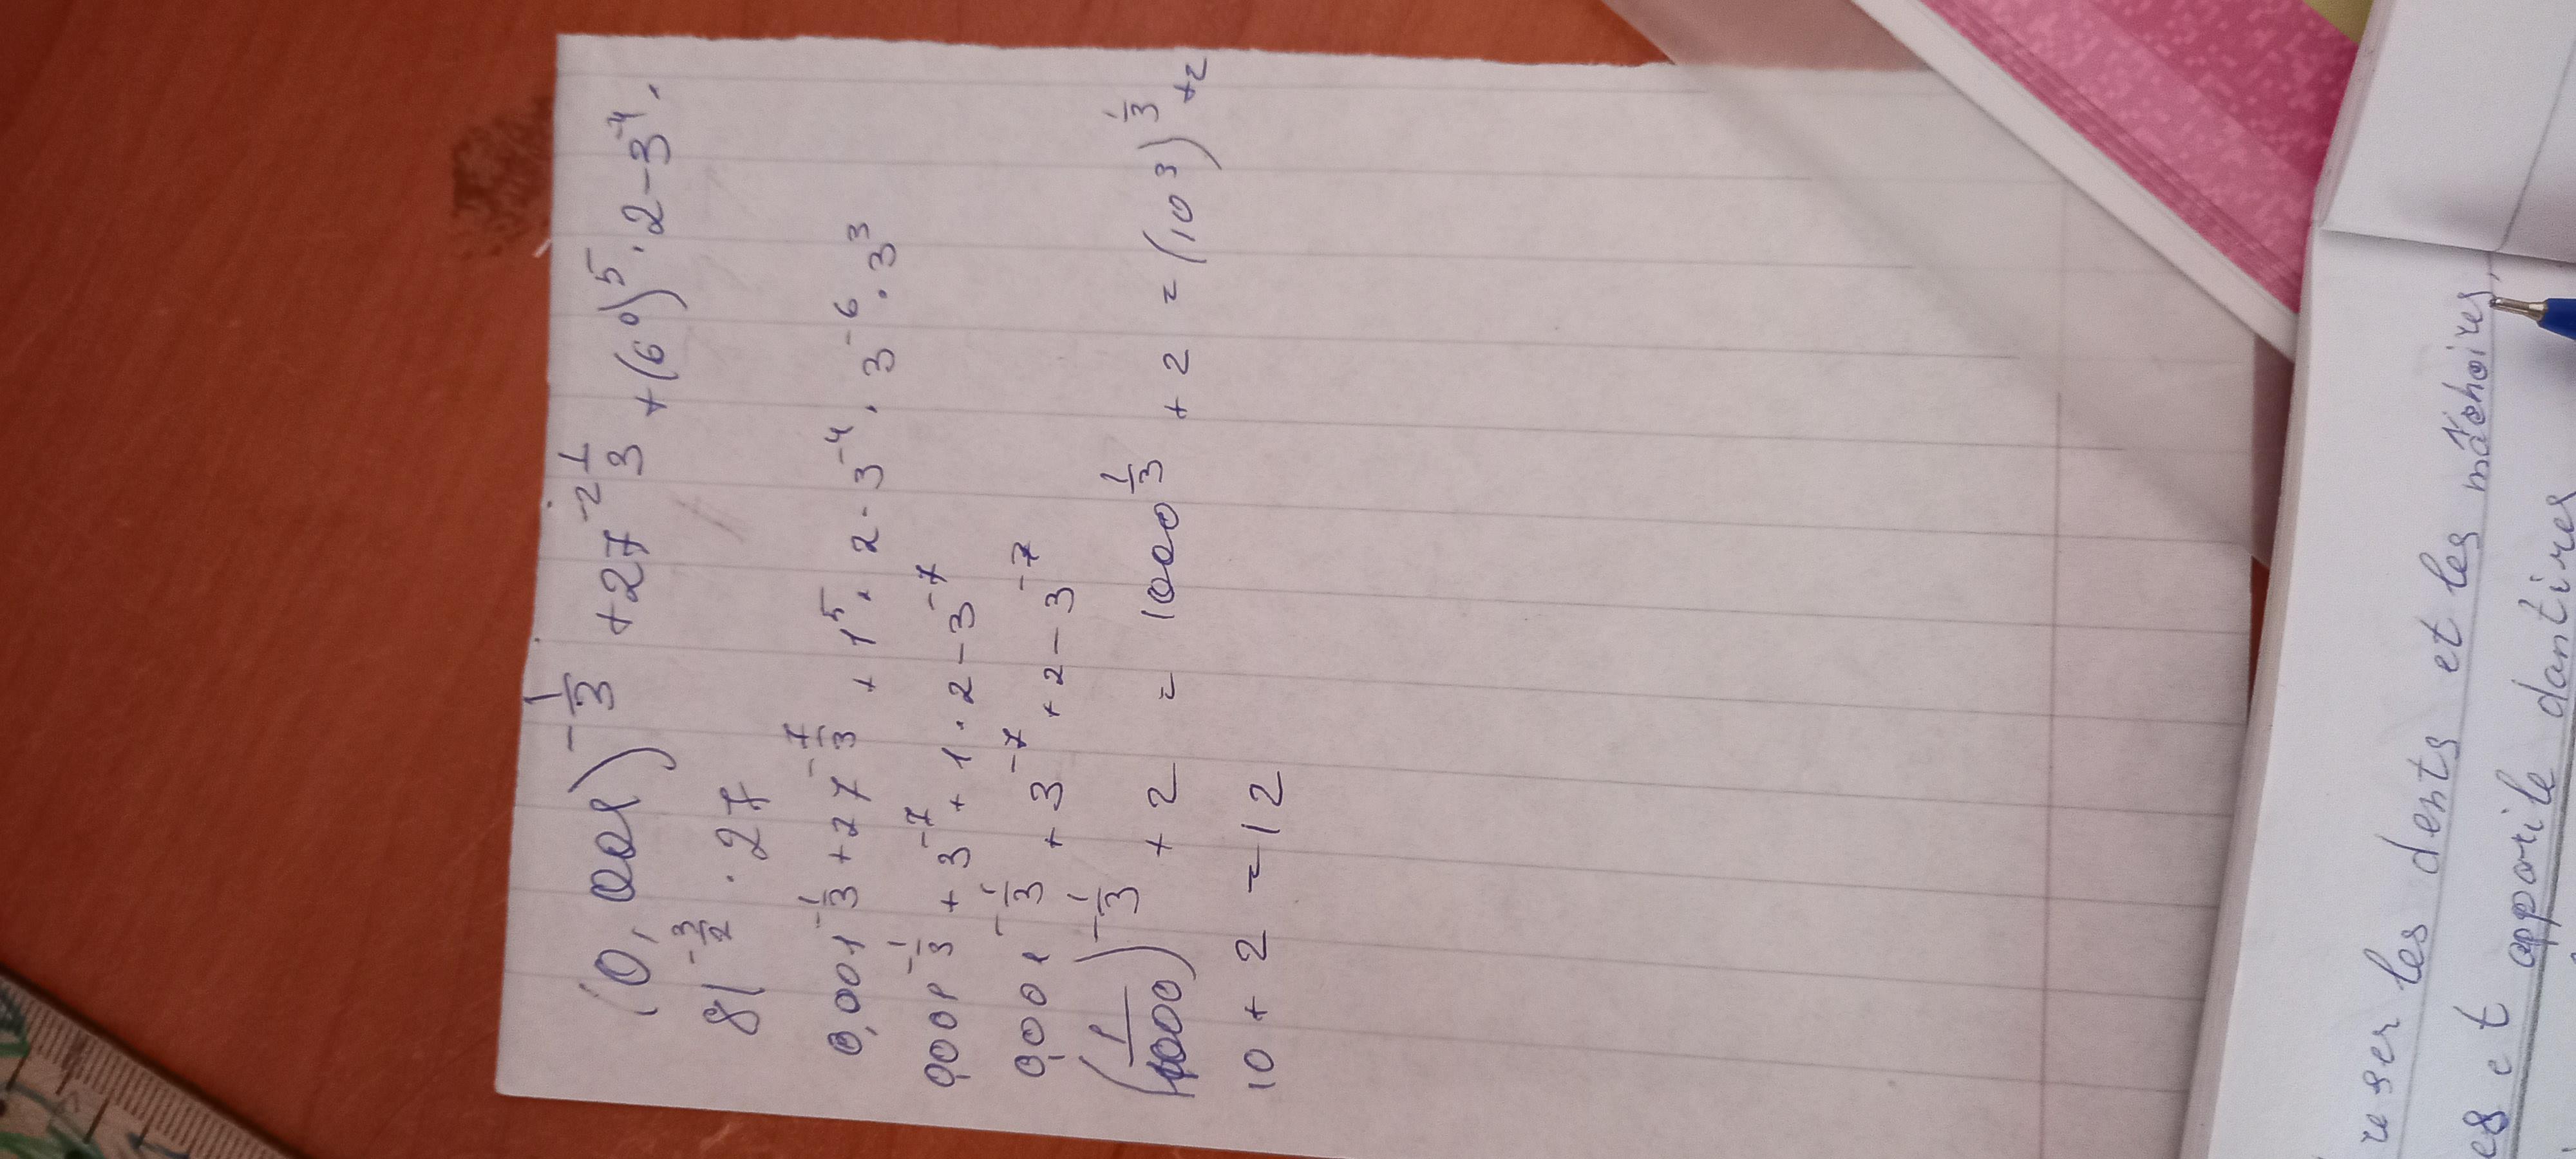 (0,001)^{-\frac{1}{3}} + 27^{-2\frac{1}{3}} + (6^0)^5 · 2 - 3^{-4} ·
81^{-\frac{3}{2}} · 27
0,001^{-\frac{1}{3}} + 27^{-\frac{7}{3}} + 1^5 · 2 - 3^{-4} · 3^{-6} · 3^3
0,001^{-\frac{1}{3}} + 3^{-7} + 1 · 2 - 3^{-7}
0,001^{-\frac{1}{3}} + 3^{-7} + 2 - 3^{-7}
(\frac{1}{1000})^{-\frac{1}{3}} + 2 = 1000^{\frac{1}{3}} + 2 = (10^3)^{\frac{1}{3}} + 2
10 + 2 = 12
les dents et les mâchoires,
et dantires